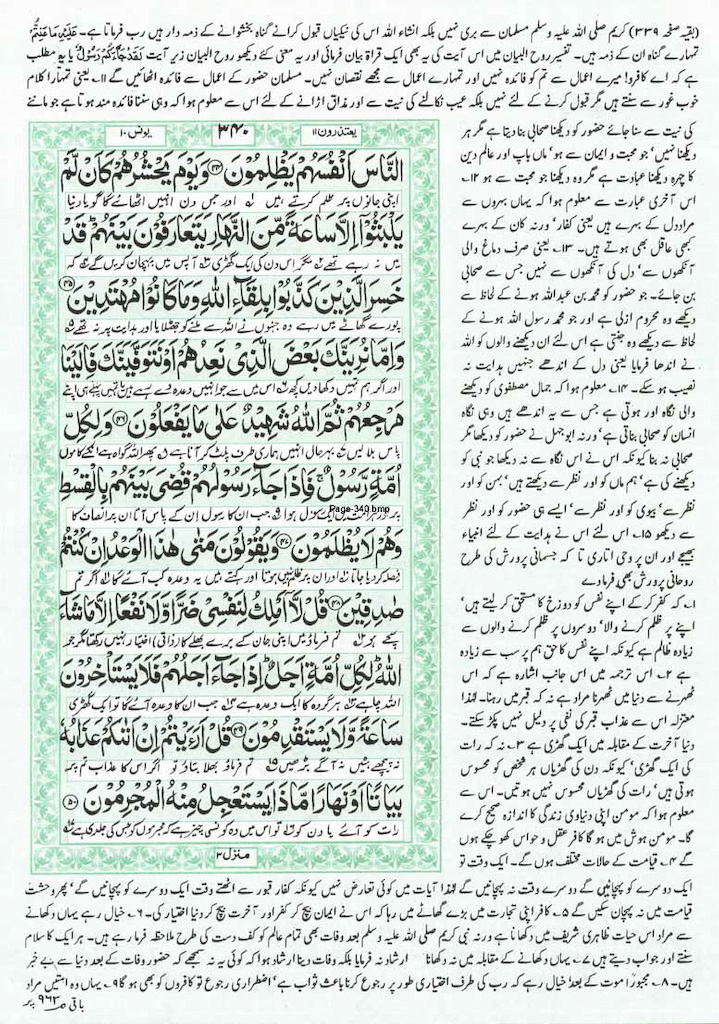 (بقیہ صفحہ ۳۳۹) کریم صلی اللہ علیہ و سلم مسلمان سے بری نہیں بلکہ انشاء اللہ اس کی نیکیاں قبول کرانے گناہ بخشوانے کے ذمہ دار ہیں رب فرماتا ہے۔ عَلَيْهِ مَا عَنِتُّمْ
تمہارے گناہ ان کے ذمہ ہیں۔ تفسیر روح البیان میں اس آیت کی یہ بھی ایک قراۃ بیان فرمائی اور یہ معنی کئے دیکھو روح البیان زیر آیت لَقَدْ جَاءَكُمْ رَسُولٌ یا یہ مطلب
ہے کہ اے کافرو! میرے اعمال سے تم کو فائدہ نہیں اور تمہارے اعمال سے مجھے نقصان نہیں۔ مسلمان حضور کے اعمال سے فائدہ اٹھائیں گے ۱۱۔ یعنی تمہارا کلام
خوب غور سے سنتے ہیں مگر قبول کرنے کے لئے نہیں بلکہ عیب نکالنے کی نیت سے اور مذاق اڑانے کے لئے اس سے معلوم ہوا کہ وہی سننا فائدہ مند ہوتا ہے جو ماننے
کی نیت سے سنا جائے حضور کو دیکھنا صحابی بنا دیتا ہے مگر ہر
دیکھنا نہیں' جو محبت و ایمان سے ہو' ماں باپ اور عالم دین
کا چہرہ دیکھنا عبادت ہے مگر وہ دیکھنا جو محبت سے ہو ۱۲۔
اس آخری عبارت سے معلوم ہوا کہ یہاں بہروں سے
مراد دل کے بہرے ہیں یعنی کفار' ورنہ کان کے بہرے
کبھی عاقل بھی ہوتے ہیں۔ ۱۳۔ یعنی صرف دماغ والی
آنکھوں سے' دل کی آنکھوں سے نہیں جس سے صحابی
بن جاتے۔ جو حضور کو محمد بن عبداللہ ہونے کے لحاظ سے
دیکھے وہ محروم ازلی ہے اور جو محمد رسول اللہ ہونے کے
لحاظ سے دیکھے وہ جنتی ہے اس لئے ان دیکھنے والوں کو اللہ
نے اندھا فرمایا یعنی دل کے اندھے جنہیں ہدایت نہ
نصیب ہو سکے۔ ۱۴۔ معلوم ہوا کہ جمال مصطفوی کو دیکھنے
والی نگاہ اور ہوتی ہے جس سے یہ اندھے ہیں وہی نگاہ
انسان کو صحابی بناتی ہے' ورنہ ابو جہل نے حضور کو دیکھا مگر
صحابی نہ بنا کیونکہ اس نے اس نگاہ سے نہ دیکھا جو نبی کو
دیکھنے کی ہے' ہم ماں کو اور نظر سے دیکھتے ہیں' بہن کو اور
نظر سے' بیوی کو اور نظر سے' ایسے ہی حضور کو اور نظر
سے دیکھو ۱۵۔ اس لئے اس نے ہدایت کے لئے انبیاء
بھیجے اور ان پر وحی اتاری تا کہ جسمانی پرورش کی طرح
روحانی پرورش بھی فرما دے
۱۔ کہ کفر کر کے اپنے نفس کو دوزخ کا مستحق کر لیتے ہیں'
اپنے پر ظلم کرنے والا' دوسروں پر ظلم کرنے والوں سے
زیادہ ظالم ہے کیونکہ اپنے نفس کا حق ہم پر سب سے زیادہ
ہے ۲۔ اس ترجمہ میں اس جانب اشارہ ہے کہ اس
ٹھہرنے سے دنیا میں ٹھہرنا مراد ہے نہ کہ قبر میں رہنا۔ لہٰذا
معتزلہ اس سے عذاب قبر کی نفی پر دلیل نہیں پکڑ سکتے۔
دنیا آخرت کے مقابلہ میں ایک گھڑی ہے ۳۔ نہ کہ رات
کی ایک گھڑی' کیونکہ دن کی گھڑیاں ہر شخص کو محسوس
ہوتی ہیں' رات کی گھڑیاں محسوس نہیں ہوتیں۔ اس سے
معلوم ہوا کہ مومن اپنی دنیاوی زندگی کا اندازہ صحیح کرے
گا۔ مومن ہوش میں ہو گا کافر عقل و حواس کھو چکے ہوں
گے ۴۔ قیامت کے حالات مختلف ہوں گے۔ ایک وقت تو
یعتذرون ۱۱
۳۴۰
یونس ۱۰
النَّاسَ اَنْفُسَهُمْ يَظْلِمُوْنَ ۴۴ وَيَوْمَ يَحْشُرُهُمْ كَاَنْ لَّمْ
اپنی جانوں پر ظلم کرتے ہیں اور جس دن انہیں اٹھائے گا گویا دنیا
يَلْبَثُوْٓا اِلَّا سَاعَةً مِّنَ النَّهَارِ يَتَعَارَفُوْنَ بَيْنَهُمْ قَدْ
میں نہ رہے تھے مگر اس دن کی ایک گھڑی آپس میں پہچان کریں گے کہ
خَسِرَ الَّذِيْنَ كَذَّبُوْا بِلِقَآءِ اللّٰهِ وَمَا كَانُوْا مُهْتَدِيْنَ ۴۵
پورے گھاٹے میں رہے وہ جنہوں نے اللہ سے ملنے کو جھٹلایا اور ہدایت پر نہ تھے
وَاِمَّا نُرِيَنَّكَ بَعْضَ الَّذِيْ نَعِدُهُمْ اَوْ نَتَوَفَّيَنَّكَ فَاِلَيْنَا
اور اگر ہم تمہیں دکھا دیں کچھ اس میں سے جو انہیں وعدہ دے رہے ہیں یا تمہیں پہلے ہی اپنے
مَرْجِعُهُمْ ثُمَّ اللّٰهُ شَهِيْدٌ عَلٰى مَا يَفْعَلُوْنَ ۴۶ وَلِكُلِّ
پاس بلا لیں بہرحال انہیں ہماری طرف پلٹ کر آنا ہے پھر اللہ گواہ ہے انکے کاموں
اُمَّةٍ رَّسُوْلٌ ۚ فَاِذَا جَآءَ رَسُوْلُهُمْ قُضِيَ بَيْنَهُمْ بِالْقِسْطِ
پر اور ہر امت میں ایک رسول ہوا جب ان کا رسول ان کے پاس آتا ان پر انصاف کا
Page-340.bmp
وَهُمْ لَا يُظْلَمُوْنَ ۴۷ وَيَقُوْلُوْنَ مَتٰى هٰذَا الْوَعْدُ اِنْ كُنْتُمْ
فیصلہ کر دیا جاتا اور ان پر ظلم نہیں ہوتا اور کہتے ہیں یہ وعدہ کب آئے گا اگر تم
صٰدِقِيْنَ ۴۸ قُلْ لَّآ اَمْلِكُ لِنَفْسِيْ ضَرًّا وَّلَا نَفْعًا اِلَّا مَا شَآءَ
سچے ہو تم فرماؤ میں اپنی جان کے برے بھلے کا (ذاتی) اختیار نہیں رکھتا مگر جو
اللّٰهُ ۭ لِكُلِّ اُمَّةٍ اَجَلٌ ۭ اِذَا جَآءَ اَجَلُهُمْ فَلَا يَسْتَاْخِرُوْنَ
اللہ چاہے ہر گروہ کا ایک وعدہ ہے جب ان کا وعدہ آئے گا تو ایک گھڑی
سَاعَةً وَّلَا يَسْتَقْدِمُوْنَ ۴۹ قُلْ اَرَءَيْتُمْ اِنْ اَتٰىكُمْ عَذَابُهٗ
نہ پیچھے ہٹیں نہ آگے بڑھیں تم فرماؤ بھلا بتاؤ تو اگر اس کا عذاب تم پر
بَيَاتًا اَوْ نَهَارًا مَّاذَا يَسْتَعْجِلُ مِنْهُ الْمُجْرِمُوْنَ ۵۰
رات کو آئے یا دن کو تو اس میں وہ کونسی چیز ہے کہ مجرموں کو جس کی جلدی ہے
منزل ۳
ایک دوسرے کو پہچانیں گے دوسرے وقت نہ پہچانیں گے لہٰذا آیات میں کوئی تعارض نہیں کیونکہ کفار قبور سے اٹھتے وقت ایک دوسرے کو پہچانیں گے' پھر وحشت
قیامت میں نہ پہچان سکیں گے ۵۔ کافر اپنی تجارت میں بڑے گھاٹے میں رہا کہ اس نے ایمان بیچ کر کفر اور آخرت بیچ کر دنیا اختیار کی۔ ۶۔ خیال رہے یہاں دکھانے
سے مراد اس حیات ظاہری شریف میں دکھانا ہے ورنہ نبی کریم صلی اللہ علیہ وسلم بعد وفات بھی تمام عالم کو کف دست کی طرح ملاحظہ فرما رہے ہیں۔ ہر ایک کا سلام
سنتے اور جواب دیتے ہیں ۷۔ یہاں دکھانے کے مقابلہ میں نہ دکھانا ارشاد نہ فرمایا بلکہ وفات دینا ارشاد ہوا کہ کوئی یہ نہ سمجھے کہ حضور وفات کے بعد دنیا سے بے خبر
ہیں۔ ۸۔ مجبوراً موت کے بعد' خیال رہے کہ رب کی طرف اختیاری طور پر رجوع کرنا باعث ثواب ہے' اضطراری رجوع تو کافروں کو بھی ہو گا ۹۔ یہاں وہ امتیں مراد
باقی ص ۹۶۲ پر